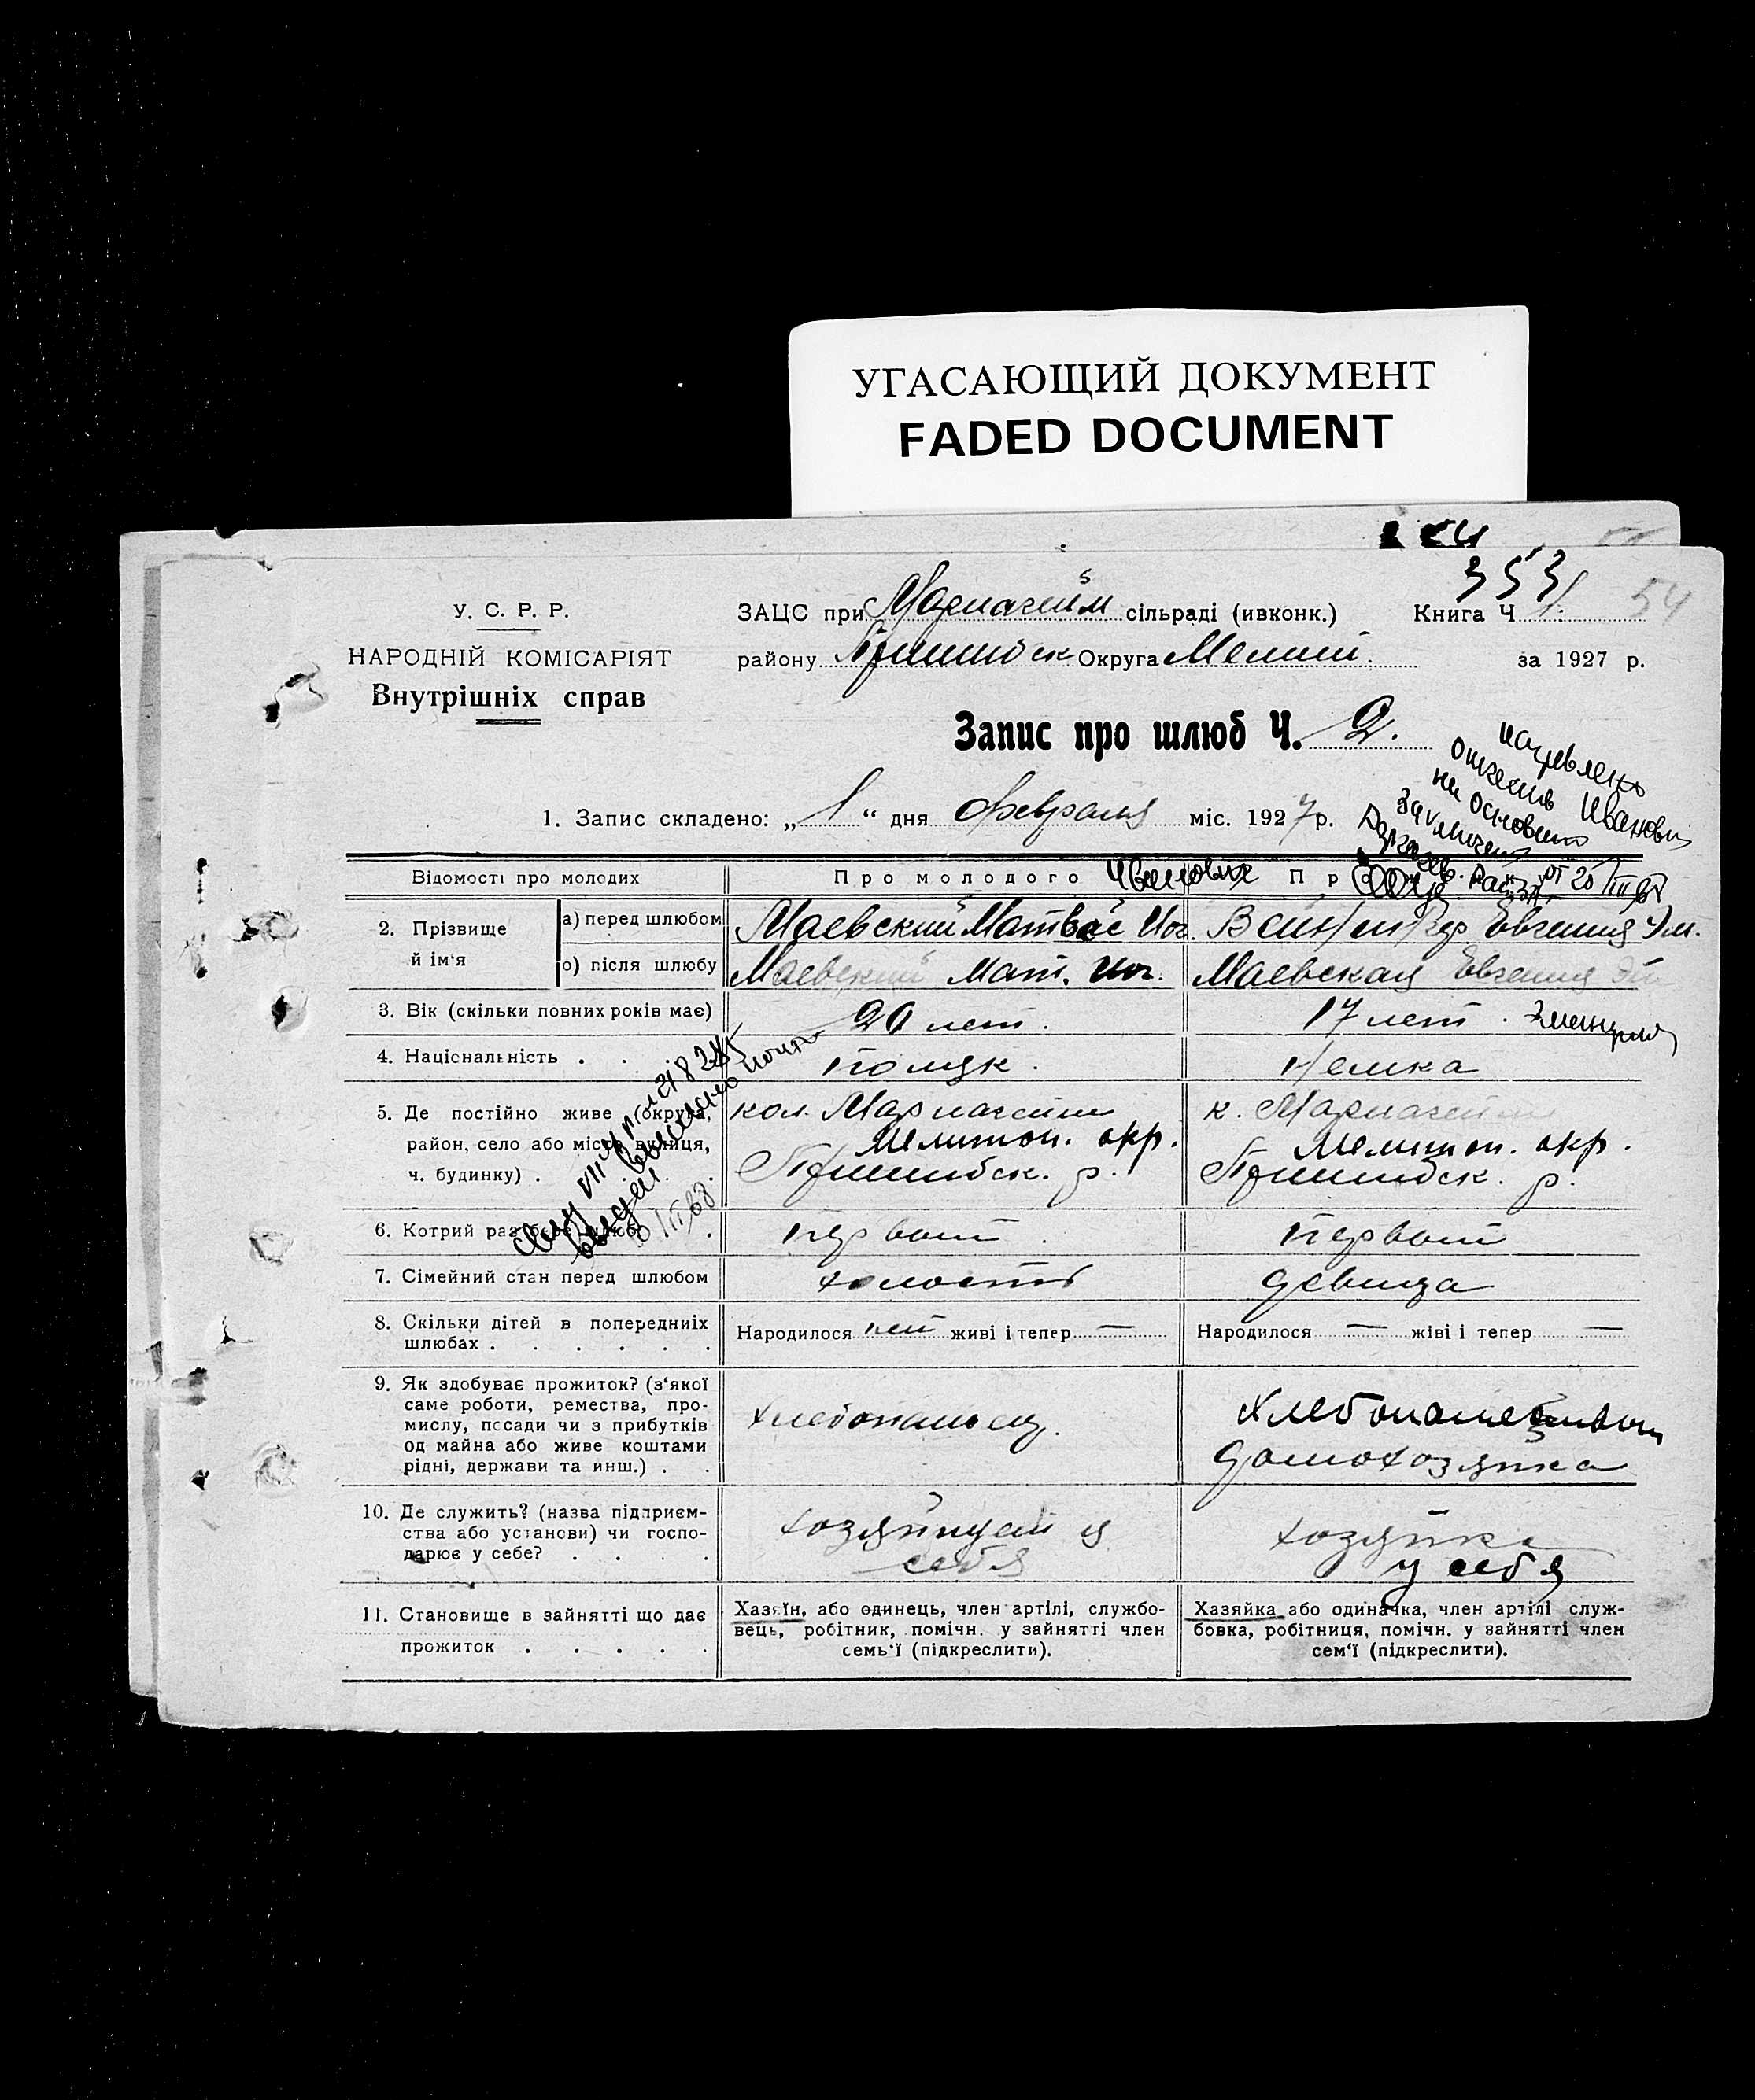 УГАСАЮЩИЙ ДОКУМЕНТ
FADED DOCUMENT
353
54
У. С. Р. Р.
НАРОДНІЙ КОМІСАРІЯТ
Внутрішніх справ
ЗАЦС при Мариагейм сільраді (ивконк.) Книга Ч 1.
району Пришибск Округа Мелит. за 1927 р.
Запис про шлюб Ч. 2.
1. Запис складено: „1“ дня февраля міс. 1927 р.
исправлено
отчество Иванович
на основании
заключения
от 20/III
Відомості про молодих
Про молодого
Иванович
2. Прізвище й ім'я
а) перед шлюбом
Маевский Матвей Иог.
Евгения Эм.
о) після шлюбу
Маевский Мат. Иог.
Маевская Евгения
3. Вік (скільки повних років має)
лет.
17 лет.
4. Національність . .
поляк.
Немка
5. Де постійно живе (округа,
район, село або місто, вулиця,
ч. будинку) .
кол. Мариагейм
Мелитоп. окр.
Пришибск. р.
к. Мариагейм
Мелитоп. окр.
Пришибск. р.
6. Котрий раз бере шлюб .
первый
первый
7. Сімейний стан перед шлюбом
холост
девица
8. Скільки дітей в попередниіх
шлюбах . . . . . .
Народилося нет живі і тепер —
Народилося — жіві і тепер —
9. Як здобуває прожиток? (з'якої
саме роботи, ремества, про-
мислу, посади чи з прибутків
од майна або живе коштами
рідні, держави та инш.) . .
хлебопашец.
домохозяйка
10. Де служить? (назва підприєм-
ства або установи) чи госпо-
дарює у себе? . . . .
хозяйнует у
себя
хозяйка
у себя
11. Становище в зайнятті що дає
прожиток . . . . .
Хазяїн, або одинець, член артілі, службо-
вець, робітник, помічн. у зайнятті член
семь'ї (підкреслити).
Хазяйка або одиначка, член артілі служ-
бовка, робітниця, помічн. у зайнятті член
сем'ї (підкреслити).